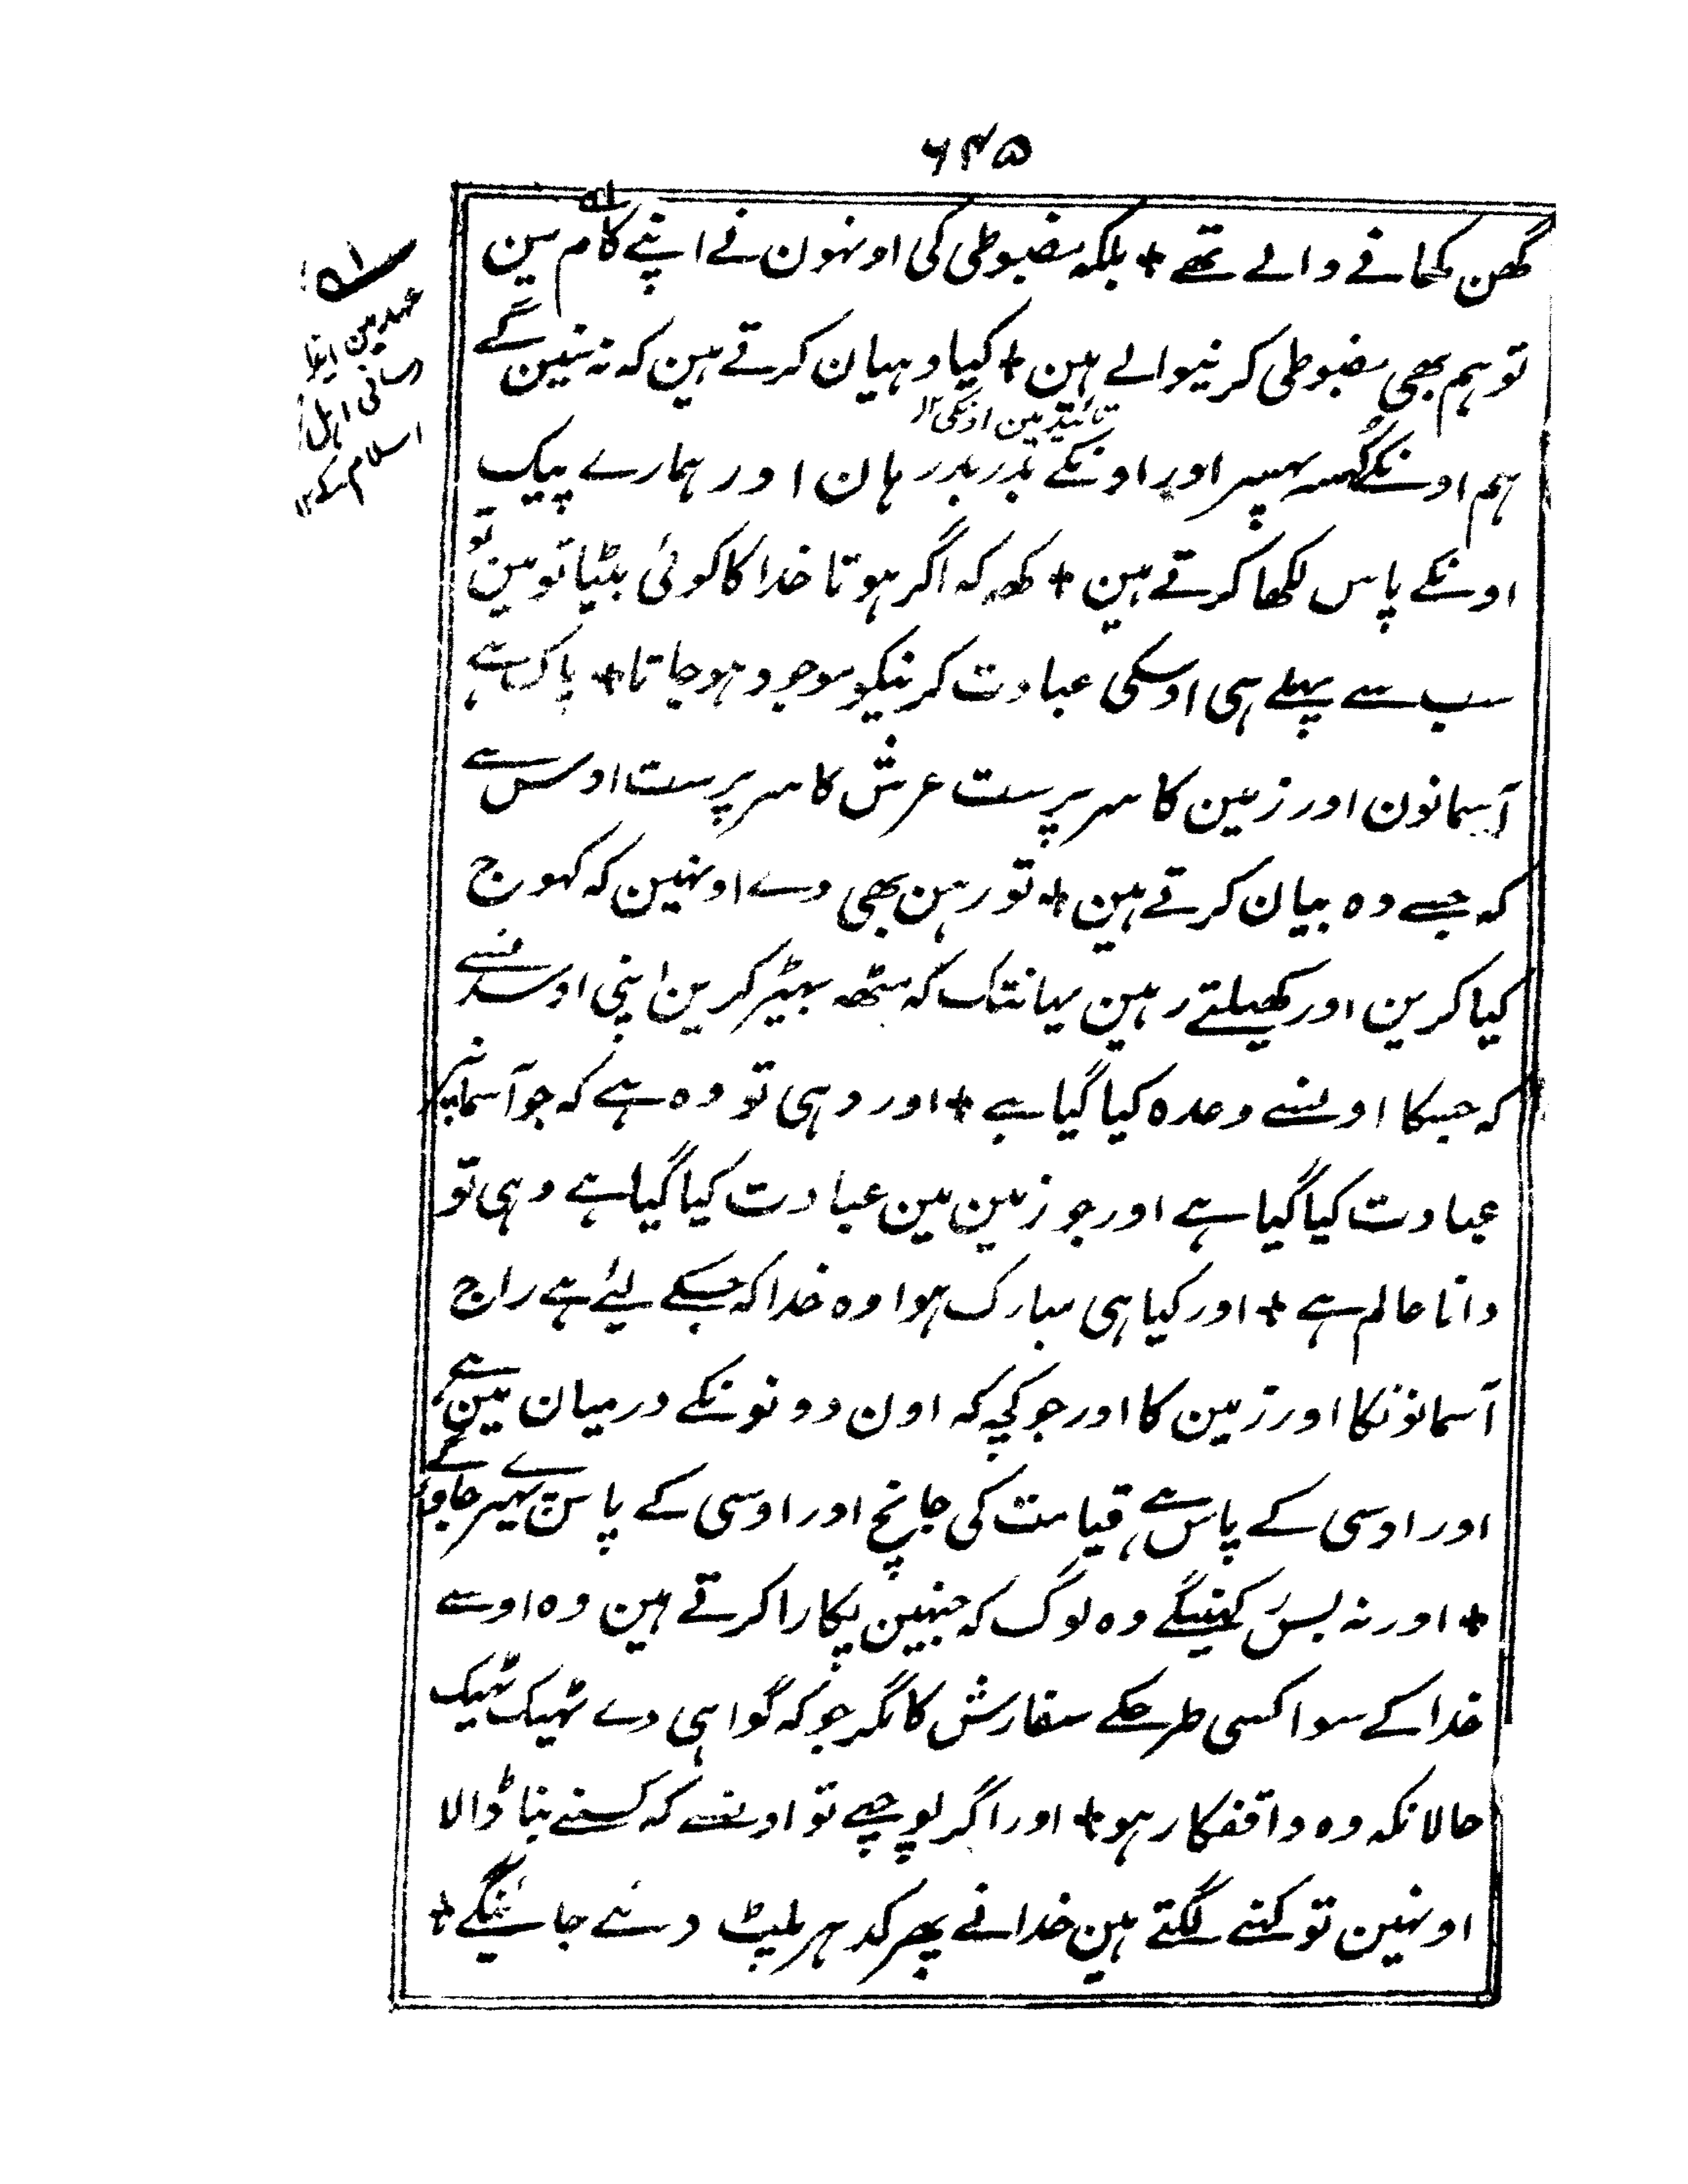 ۶۴۵
گھن کھانے والے تھے + بلکہ مضبوطی کی اونہون نے اپنے کام مین
تو ہم بھی مضبوطی کرنیوالے ہین + کیا دہیان کرتے ہین کہ نہ سنین گے
تائید مین اونکی ۱۲
ہم اونکے گہسر پہسر اور اونکے بدر بدر ہان اور ہمارے پیک
اونکے پاس لکھا کرتے ہین + کھہ کہ اگر ہوتا خدا کا کوئی بیٹا تو مین تو
سب سے پہلے ہی اوسکی عبادت کرنیکو موجود ہوجاتا + پاک ہے
آسمانون اور زمین کا سرپرست عرش کا سرپرست اوس سے
کہ جسے وہ بیان کرتے ہین + تو رہن بھی دے اونہین کہ کہوج
کیا کرین اور کھیلتے رہین یہانتک کہ مٹھہ بہیڑ کرین اپنی اوسدن سے
کہ جسکا اونسے وعدہ کیا گیا ہے + اور وہی تو وہ ہے کہ جو آسمانپر
عبادت کیا گیا ہے اور جو زمین مین عبادت کیا گیا ہے وہی تو
دانا عالم ہے + اور کیا ہی مبارک ہوا وہ خدا کہ جسکے لئے ہے راج
آسمانونکا اور زمین کا اور جو کچہ کہ اون دونونکے درمیان مین ہے
اور اوسی کے پاس ہے قیامت کی جانچ اور اوسی کے پاس پہیرے جاؤگے
+ اور نہ بس رکہینگے وہ لوگ کہ جنہین پکارا کرتے ہین وہ اوسے
خدا کے سوا کسی طرحکے سفارش کا مگر جو کہ گواہی دے ٹہیک ٹہیک
حالانکہ وہ واقفکار ہو + اور اگر پوچھے تو اونسے کہ کسنے بنا ڈالا
اونہین تو کہنے لگتے ہین خدا نے پھر کدہر پلیٹ دئے جائینگے +
عہد مین
اہل
اسلام کے ۱۲